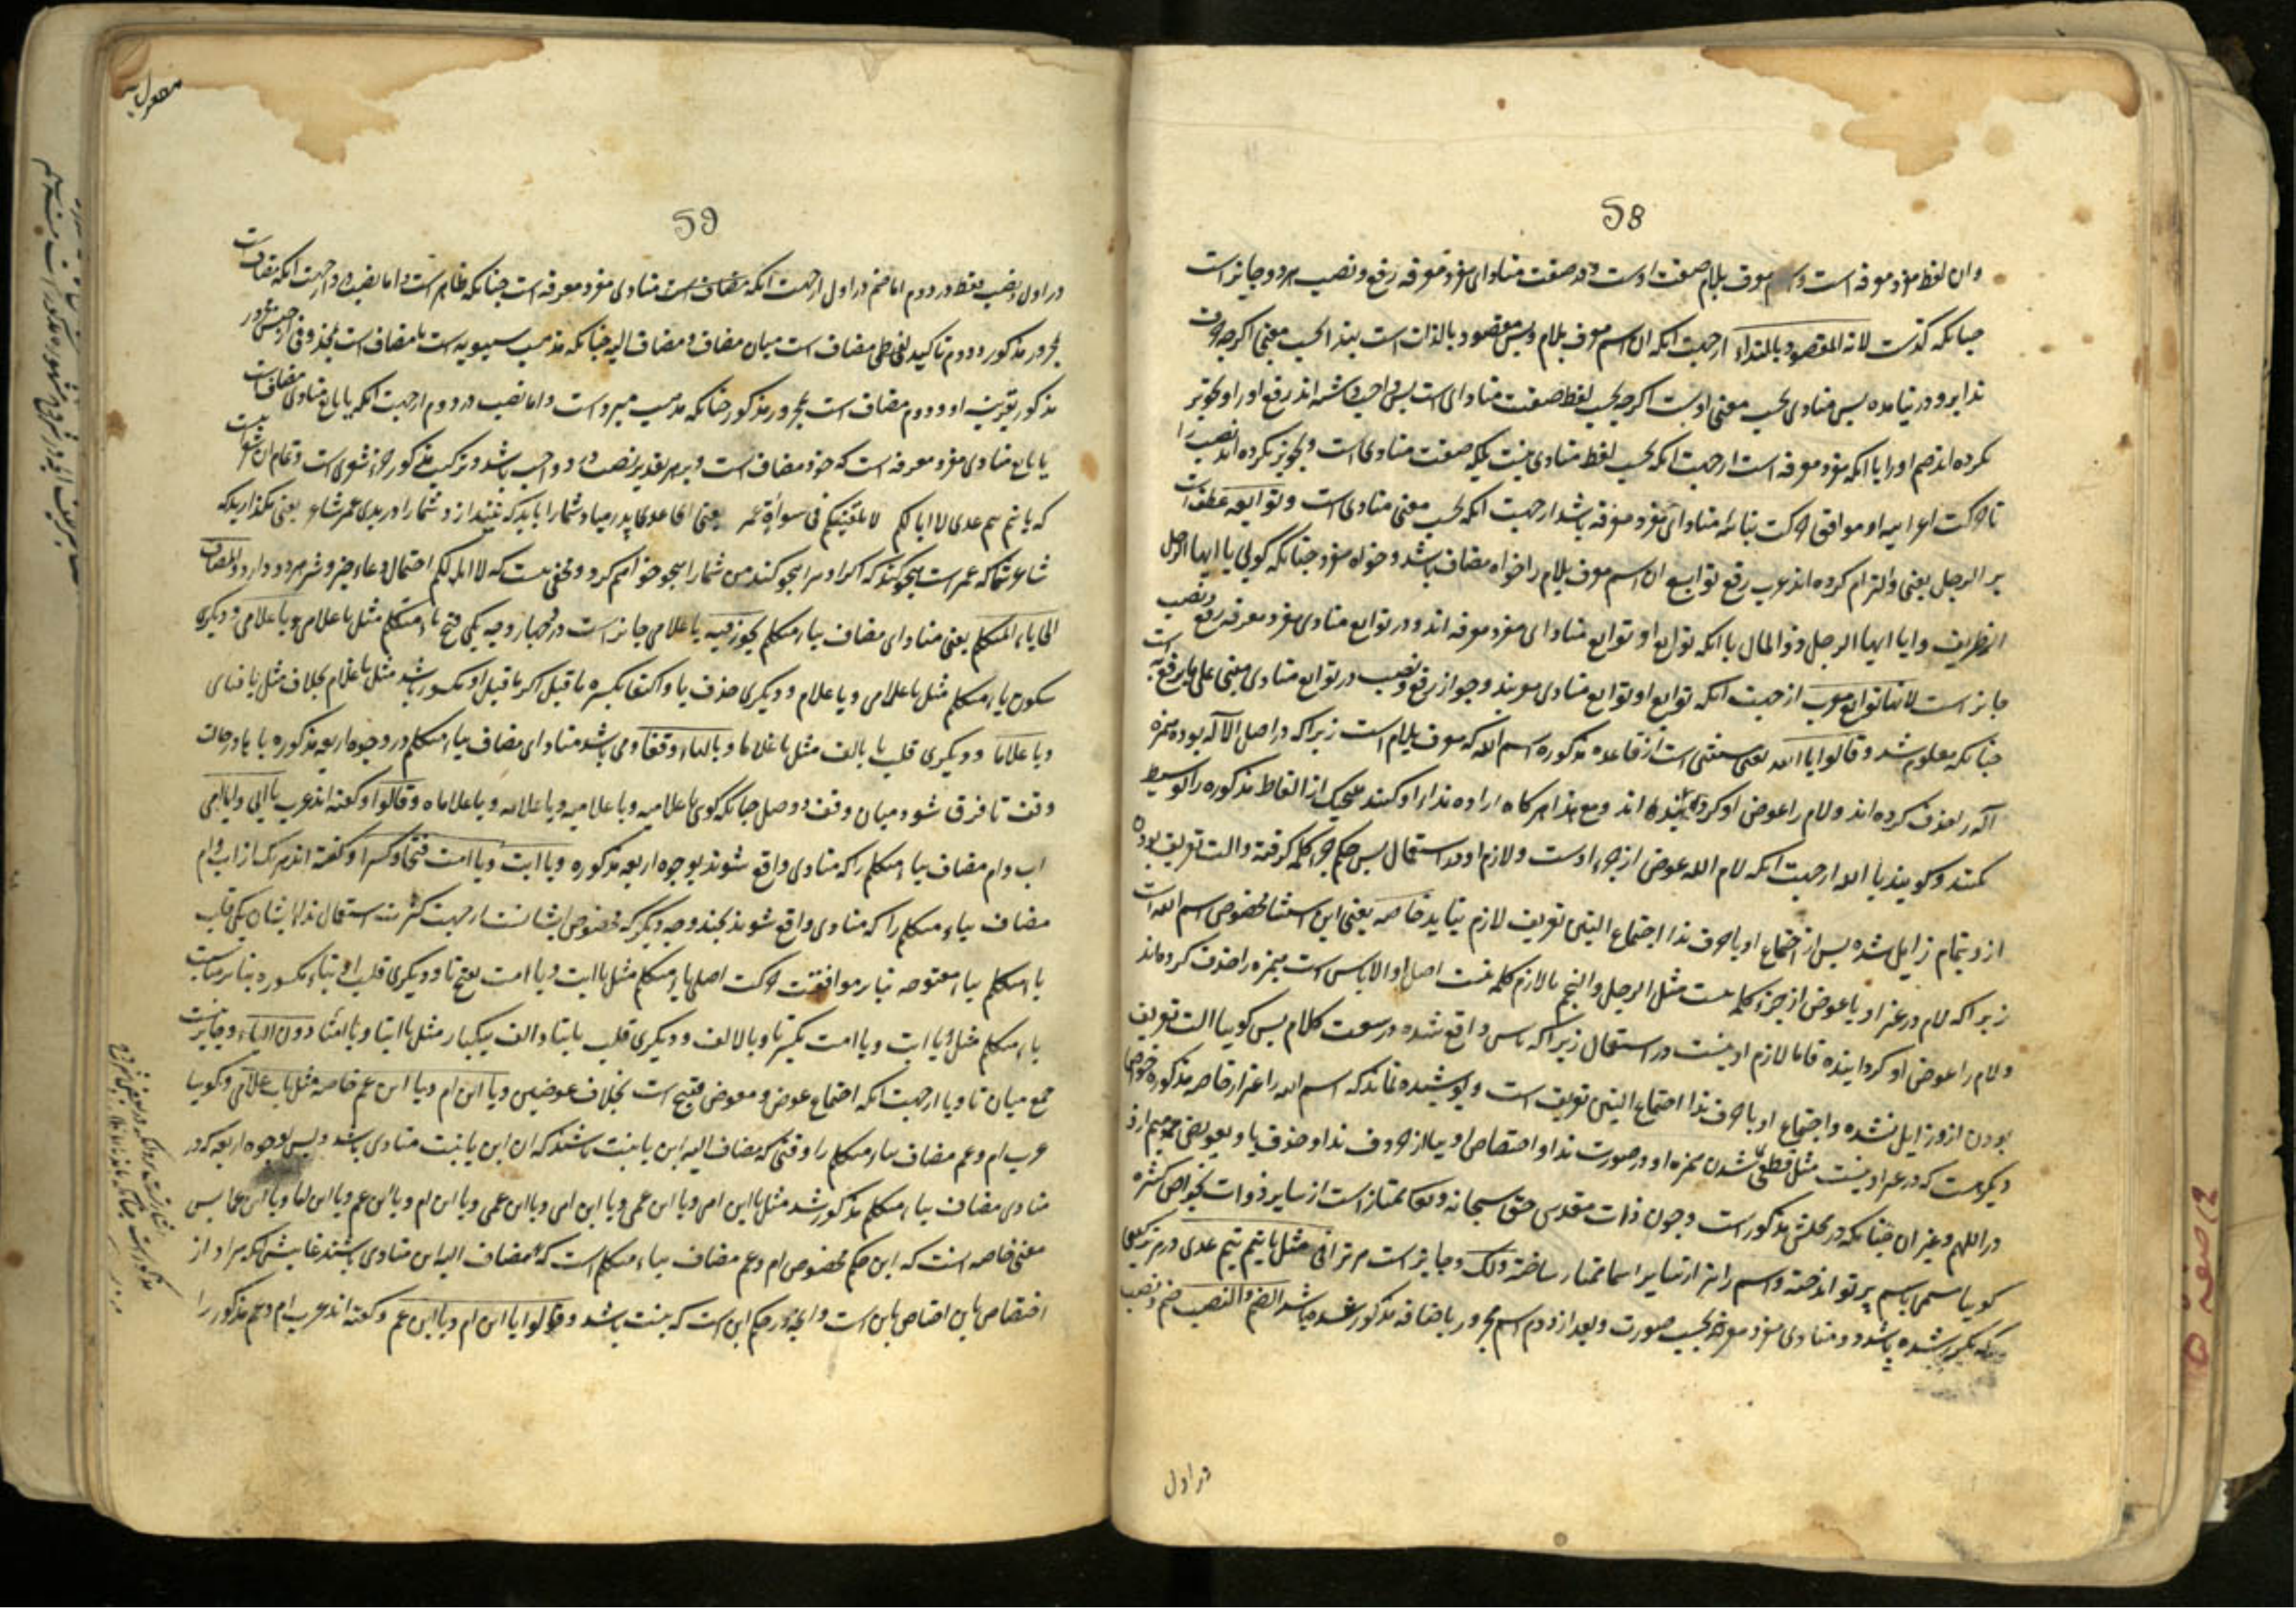 58
وان لفظ مفرد معرفه است و اسم معرف بلام صفت اوست و در صفت منادای مفرد معرفه رفع و نصب هر دو جایز است
چنانکه گذشت لانه المقصود بالنداء ازجهت انکه ان اسم معرف بلام و بس مقصود بالذات است بندا بحسب معنی اگرچه حرف
ندا برو در نیامده پس منادی بحسب معنی اوست اگرچه بحسب لفظ صفت منادای است پس واجب داشته اند رفع او را و تجویز
نکرده اند ضم او را با انکه مفرد معرفه است ازجهت انکه بحسب لفظ منادی نیست بلکه صفت منادی است و تجویز نکرده اند نصب را
تا حرکت اعرابیه او موافق حرکت بنائیه منادای مفرد معرفه باشد ازجهت انکه بحسب معنی منادی است و توابعه عطف است
بر الرجل یعنی والتزام کرده اند عرب رفع توابع ان اسم معرف بلام را خواه مضاف باشد و خواه مفرد چنانکه گویی یا ایها الرجل
الظریف و یا ایها الرجل ذو المال با انکه توابع او توابع منادای مفرد معرفه اند و در توابع منادی مفرد معرفه رفع و نصب
جایز است لانها توابع معرب ازجهت انکه توابع او توابع منادی معربند و جواز رفع و نصب در توابع منادی مبنی علی ما یرفع به است
چنانکه معلوم شد و قالوا یا الله یعنی مستثنی است از قاعده مذکوره اسم الله که معرف بلام است زیراکه در اصل الاله بوده همزه
اله را حذف کرده اند و لام را عوض او گردانیده اند و مع هذا هرگاه اراده ندا او کنند هیچیک از الفاظ مذکوره را توسیط
نکنند و گویند یا الله ازجهت انکه لام الله عوض از جزء اوست و لازم او در استعمال پس حکم جزء کلمه گرفته و الت تعریف بودن
ازو بتمام زایل شده پس از اجتماع او با حرف ندا اجتماع التین تعریف لازم نیاید خاصه یعنی این استثنا مخصوص اسم الله است
زیراکه لام در غیر او یا عوض از جزء کلمه نیست مثل الرجل و النجم یا لازم کلمه نیست اصل او الاناس است همزه را حذف کرده اند
ولام را عوض او گردانیده فاما لازم او نیست در استعمال زیراکه ناس واقع شده در سعت کلام پس گویا الت تعریف
بودن ازو زایل نشده و اجتماع او با حرف ندا اجتماع التین تعریف است و پوشیده نماند که اسم الله را غیر از خاصه مذکوره خواص
دیگر هست که در غیر او نیست مثل قطعی شدن همزه او در صورت ندا و اختصاص او بیا از حروف ندا و حذف یا و تعویض میم از او
در اللهم و غیر ان چنانکه در محلش مذکور است و چون ذات مقدس حق سبحانه و تعالی ممتاز است از سایر ذوات بخواص کثیره
گویا مسمی باسم پرتو انداخته و اسم را نیز از سایر اسما ممتاز ساخته ولک و جایز است مر ترا فی مثل یا تیم تیم عدی در هر ترکیبی
که مکرر شده باشد درو منادی مفرد معرفه بحسب صورت و بعد از دوم اسم مجرور باضافه مذکور شده باشد الضم والنصب ضم و نصب
در اول
59
در اول و نصب فقط در دوم اما ضم در اول ازجهت انکه منادی مفرد معرفه است چنانکه ظاهر است و اما نصب درو ازجهت انکه مضاف است
بمجرور مذکور و دوم تاکید لفظی مضاف است میان مضاف و مضاف الیه چنانکه مذهب سیبویه است یا مضاف است بمحذوفی از جنس مجرور
مذکور بقرینه او و دوم مضاف است بمجرور مذکور چنانکه مذهب مبرد است و اما نصب در دوم ازجهت انکه یا تابع منادی مضاف است
یا تابع منادی مفرد معرفه است که خود مضاف است و بر هر تقدیر نصب در او واجب باشد و ترکیب مذکور جزء شعری است و تمام ان شعر اینست
که یا تیم تیم عدی لا ابا لکم لا یلقینکم فی سوأة عمر یعنی ای عدی پدر مباد شما را باید که نیندازد شما را در بدی عمر شاعر یعنی مگذارید که
شاعر شما که عمر است هجو کند که اگر او مرا هجو کند من شما را هجو خواهم کرد و مخفی نیست که لا ابا لکم احتمال دعاء خیر و شر هر دو دارد والمضاف
الی یاء المتکلم یعنی منادای مضاف بیاء متکلم یجوز فیه یا غلامی جایز است درو چهار وجه یکی فتح یاء متکلم مثل یا غلامی و یا غلامی و دیگری
سکون یاء متکلم مثل یا غلامی و یا غلام و دیگری حذف یا و اکتفا بکسره ماقبل اگر ماقبل او مکسور باشد مثل یا غلام بخلاف مثل یا فتای
و یا غلاما و دیگری قلب یا بالف مثل یا غلاما و بالهاء وقفا و می باشد منادای مضاف بیاء متکلم در وجوه اربعه مذکوره با ها در حالت
وقف تا فرق شود میان وقف و وصل چنانکه گوی یا غلامیه و یا غلامیه و یا غلامه و یا غلاماه و قالوا و گفته اند عرب یا ابی و یا امی
اب و ام مضاف بیاء متکلم را که منادی واقع شوند بوجوه اربعه مذکوره و یا ابت و یا امت فتحا و کسرا و گفته اند هر یک از اب و ام
مضاف بیاء متکلم را که منادی واقع شوند بچند وجه دیگر که مخصوص ایشانست ازجهت کثرت استعمال ندا ایشان یکی قلب
یاء متکلم بتاء مفتوحه بنابر موافقت حرکت اصلی یاء متکلم مثل یا ابت و یا امت بفتح تا و دیگری قلب او بتاء مکسوره بنابر مناسبت
یاء متکلم مثل یا ابت و یا امت بکسر تا و بالالف و دیگری قلب یا بتا و الف یکبار مثل یا ابتا و یا امتا دون الیاء و جایز نیست
جمع میان تا و یا ازجهت انکه اجتماع عوض و معوض قبیح است بخلاف عوضین و یا ابن ام و یا ابن عم خاصه مثل باب یا غلامی و گویا
عرب ام و عم مضاف بیاء متکلم را وقتی که مضاف الیه ابن یا بنت باشند که ان ابن یا بنت منادی باشد و پس بوجوه اربعه که در
منادی مضاف بیاء متکلم مذکور شد مثل یا ابن امی و یا ابن عمی و یا ابن امی و یا ابن عمی و یا ابن ام و یا ابن عم و یا ابن اما و یا ابن عما پس
معنی خاصه انست که این حکم مخصوص ام و عم مضاف بیاء متکلم است که مضاف الیه ابن منادی باشند غایتش انکه مراد از
اختصاص باین اختصاص باین است و انچه در حکم ابن است که بنت باشد و قالوا یا ابن ام و یا ابن عم و گفته اند عرب ام و عم مذکور را